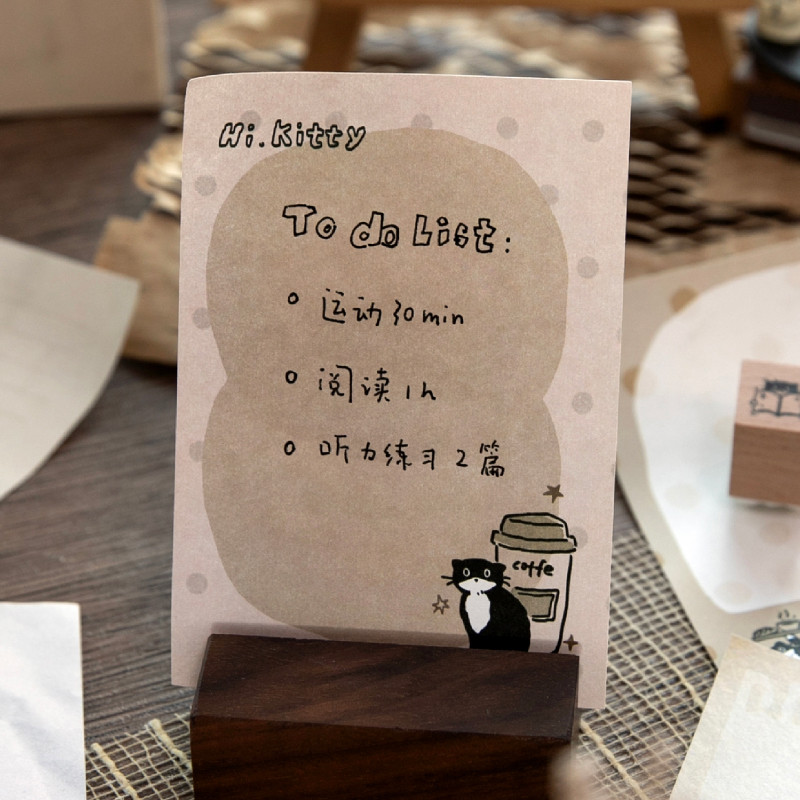 Hi. Kitty
To do List:
运动30min
阅读1h
听力练习2篇
coffe